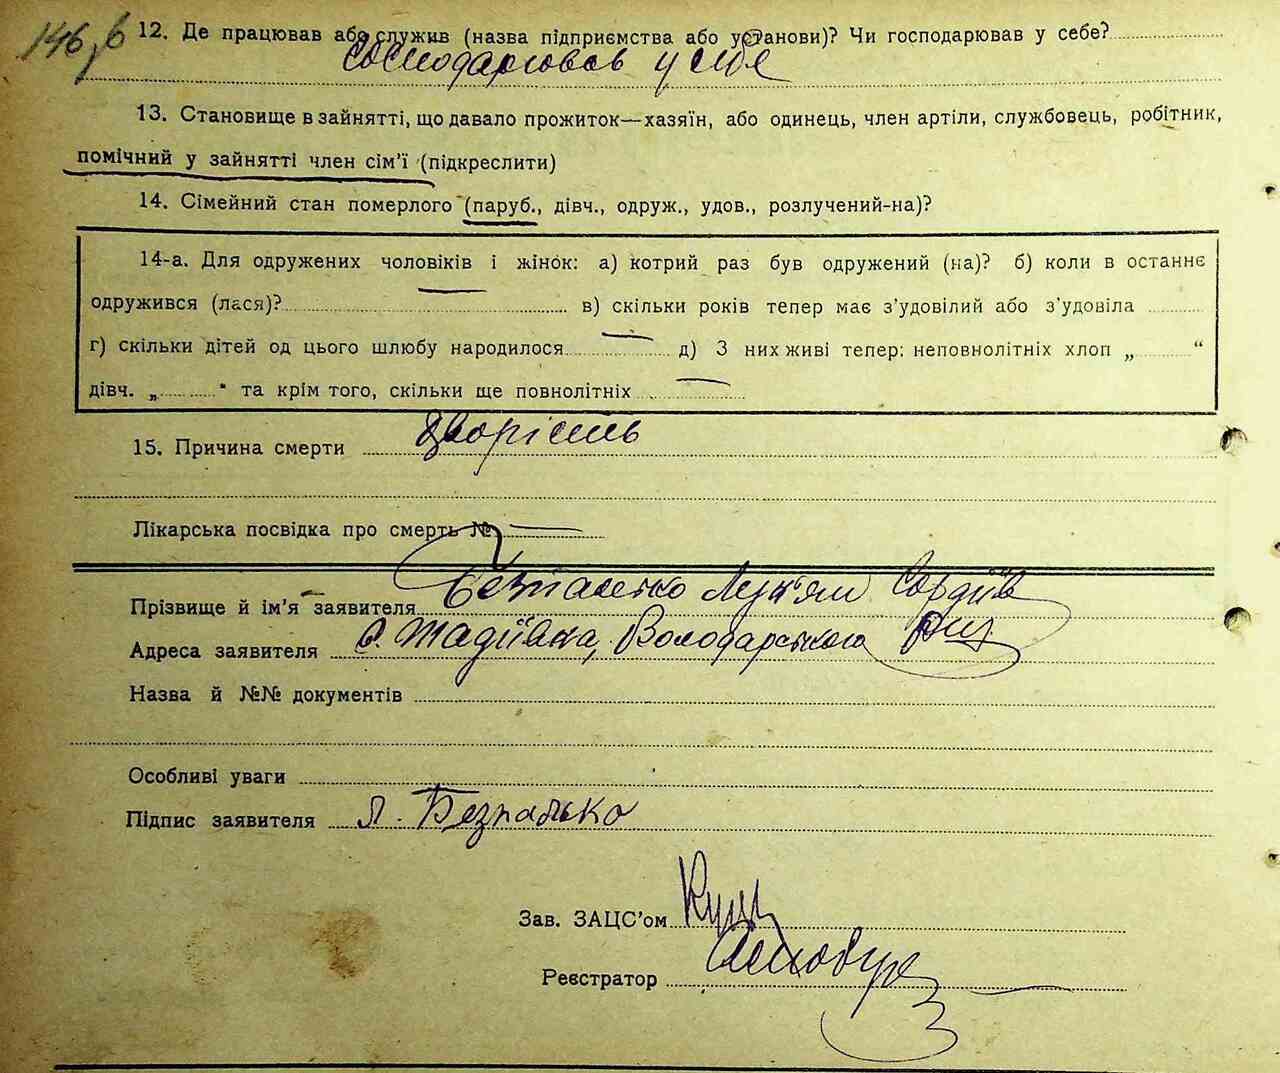 146, б
12. Де працював або служив (назва підприємства або установи)? Чи господарював у себе?
господарював у себе
13. Становище в зайнятті, що давало прожиток—хазяїн, або одинець, член артіли, службовець, робітник,
помічний у зайнятті член сім'ї (підкреслити)
14. Сімейний стан померлого (паруб., дівч., одруж., удов., розлучений-на)?
14-а. Для одружених чоловіків і жінок: а) котрий раз був одружений (на)? б) коли в останнє
одружився (лася)? в) скільки років тепер має з'удовілий або з'удовіла
г) скільки дітей од цього шлюбу народилося д) З них живі тепер: неповнолітніх хлоп „ “
дівч. „ " та крім того, скільки ще повнолітніх
15. Причина смерти
Лікарська посвідка про смерть №
Прізвище й ім'я заявителя Безпалько Лукян
Адреса заявителя с. Володарського
Назва й №№ документів
Особливі уваги
Підпис заявителя Л. Безпалько
Зав. ЗАЦС'ом
Реєстратор